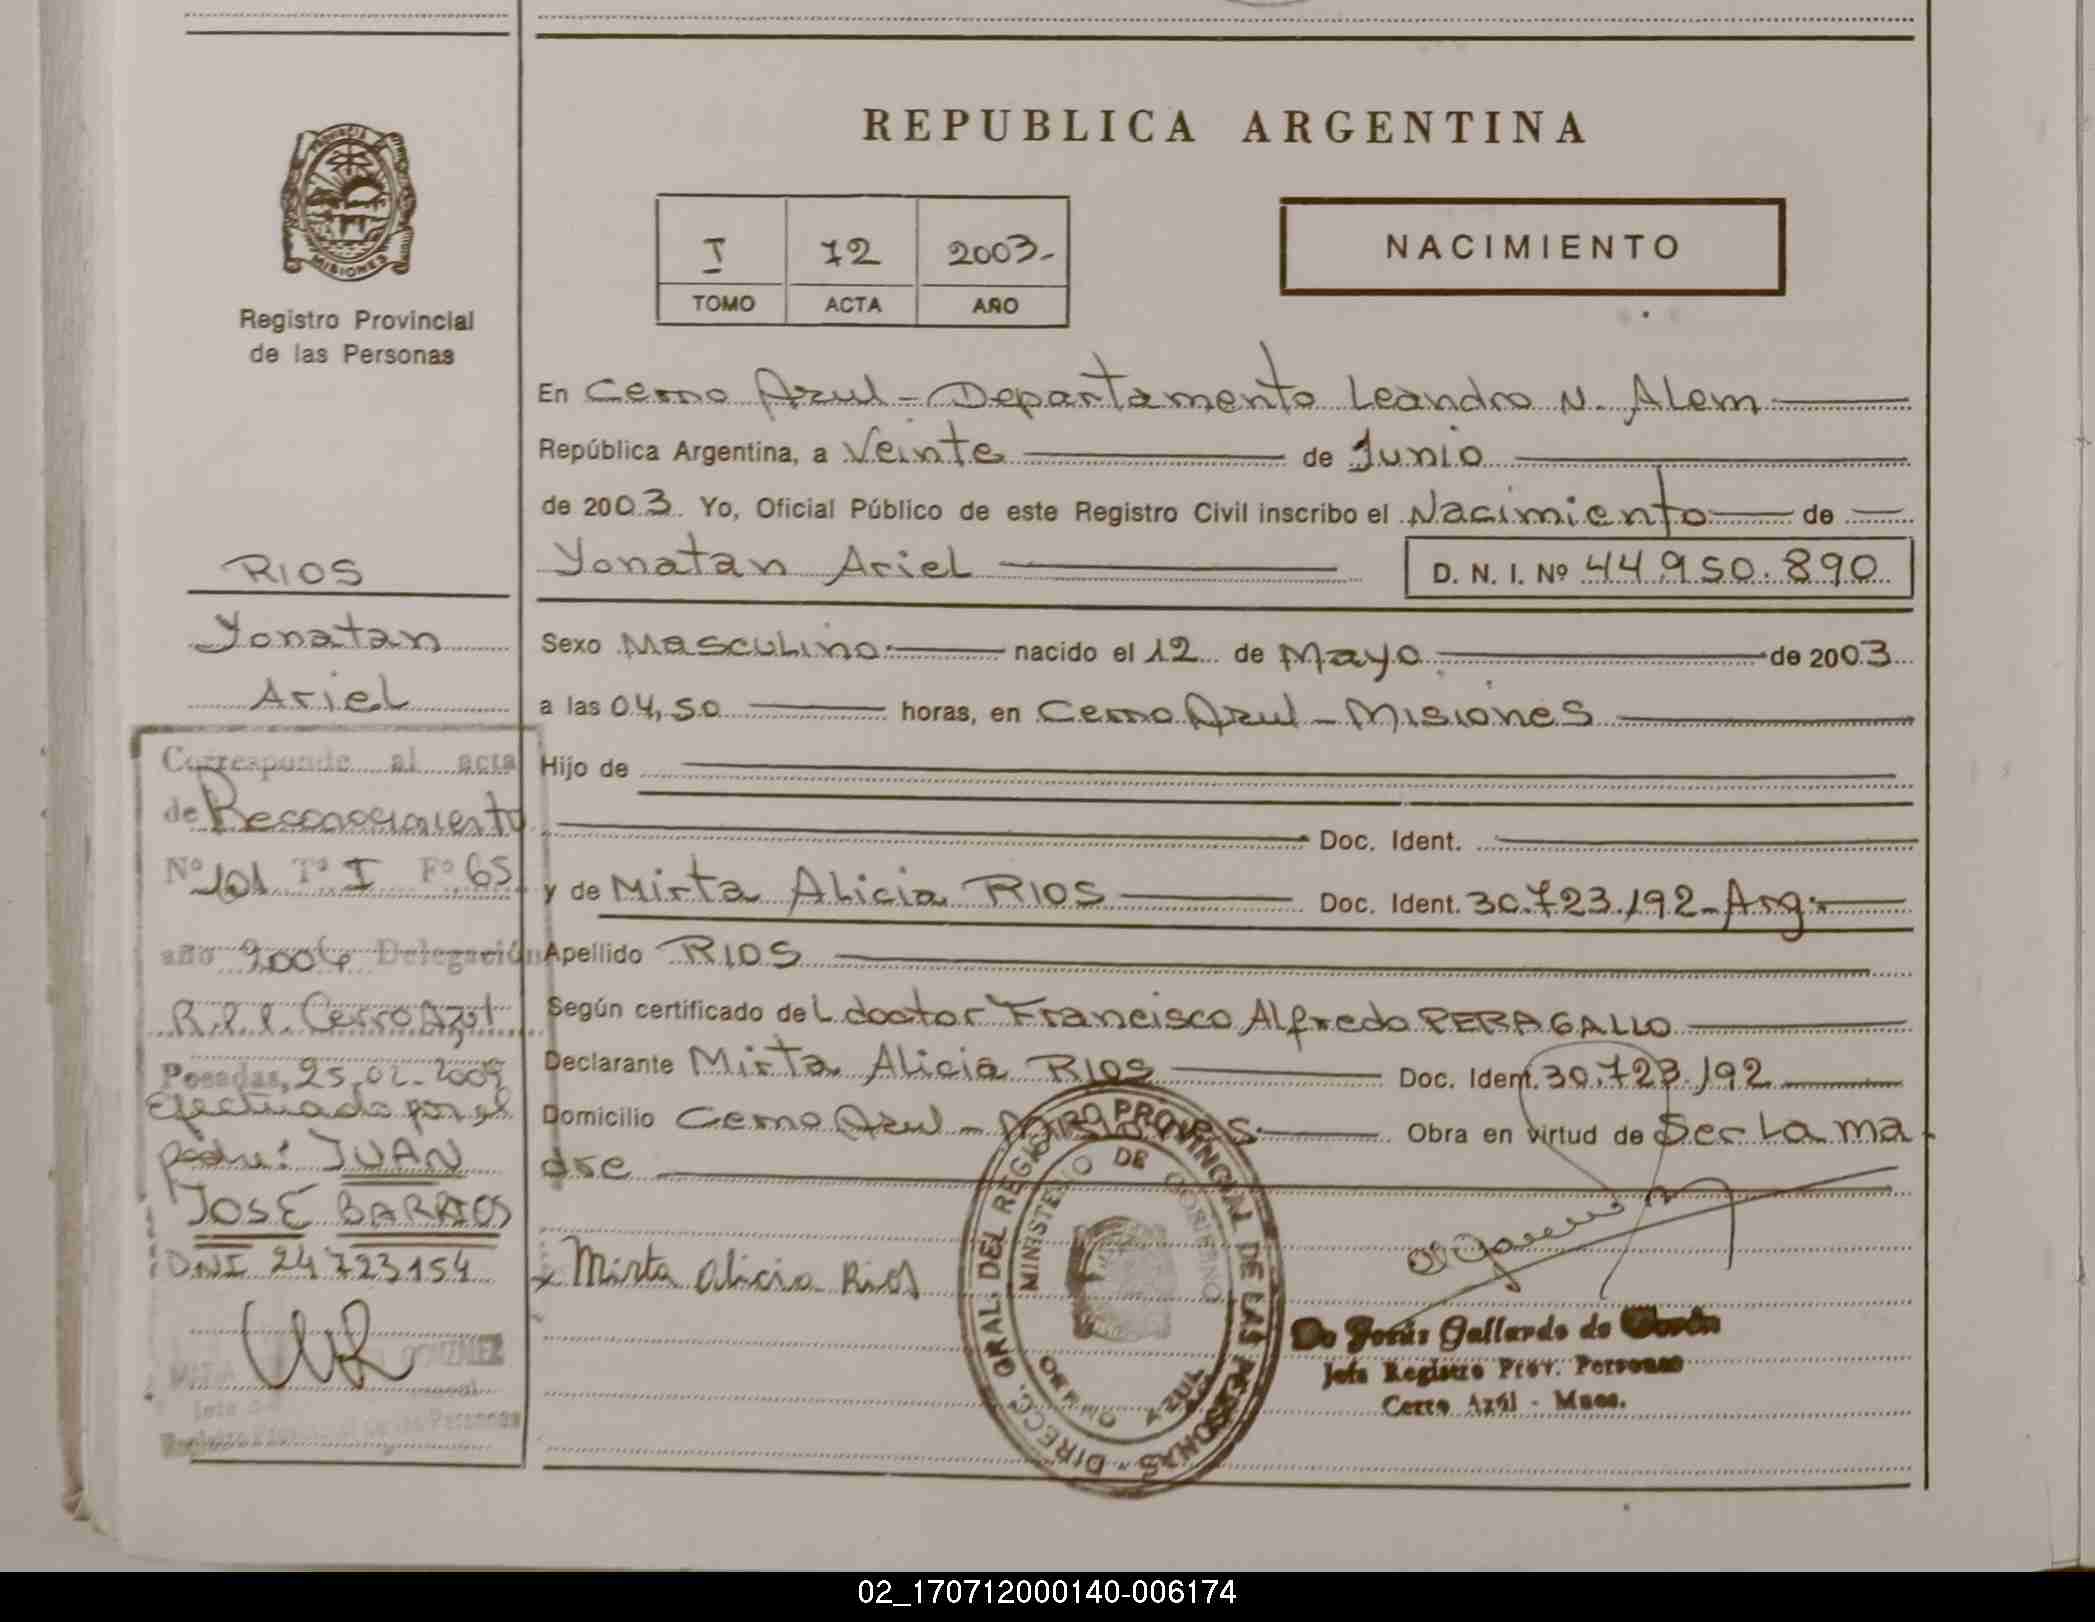 REPUBLICA ARGENTINA
PROVINCIA DE MISIONES
Registro Provincial
de las Personas
I 72 2003.-
TOMO ACTA AÑO
NACIMIENTO
En Cerro Azul - Departamento Leandro N. Alem
República Argentina, a Veinte de Junio
de 2003. Yo, Oficial Público de este Registro Civil inscribo el Nacimiento de
Yonatan Ariel D. N. I. Nº 44.950.890
Sexo Masculino nacido el 12 de Mayo de 2003
a las 04,50 horas, en Cerro Azul - Misiones
Hijo de
Doc. Ident.
y de Mirta Alicia RIOS Doc. Ident. 30.723.192-Arg.
Apellido RIOS
Según certificado del doctor Francisco Alfredo PERAGALLO
Declarante Mirta Alicia RIOS Doc. Ident. 30.723.192
Domicilio Cerro Azul - Obra en virtud de Ser la ma
dre
x Mirta Alicia Rios
RIOS
Yonatan
Ariel
Corresponde al acta
de Reconocimiento
Nº 101 Tº I Fº 65
año 2004 Delegación
Cerro Azul
Posadas, 25.02.2009
Efectuado por el
padre: JUAN
JOSÉ BARRIOS
DNI 24723154
Registro Provincial de las Personas
DIRECC. GRAL. DEL REGISTRO PROVINCIAL DE LAS PERSONAS
MINISTERIO DE GOBIERNO
CERRO AZUL
Gallardo de
Jefa Registro Prov. Personas
Cerro Azul - Mnes.
02_170712000140-006174